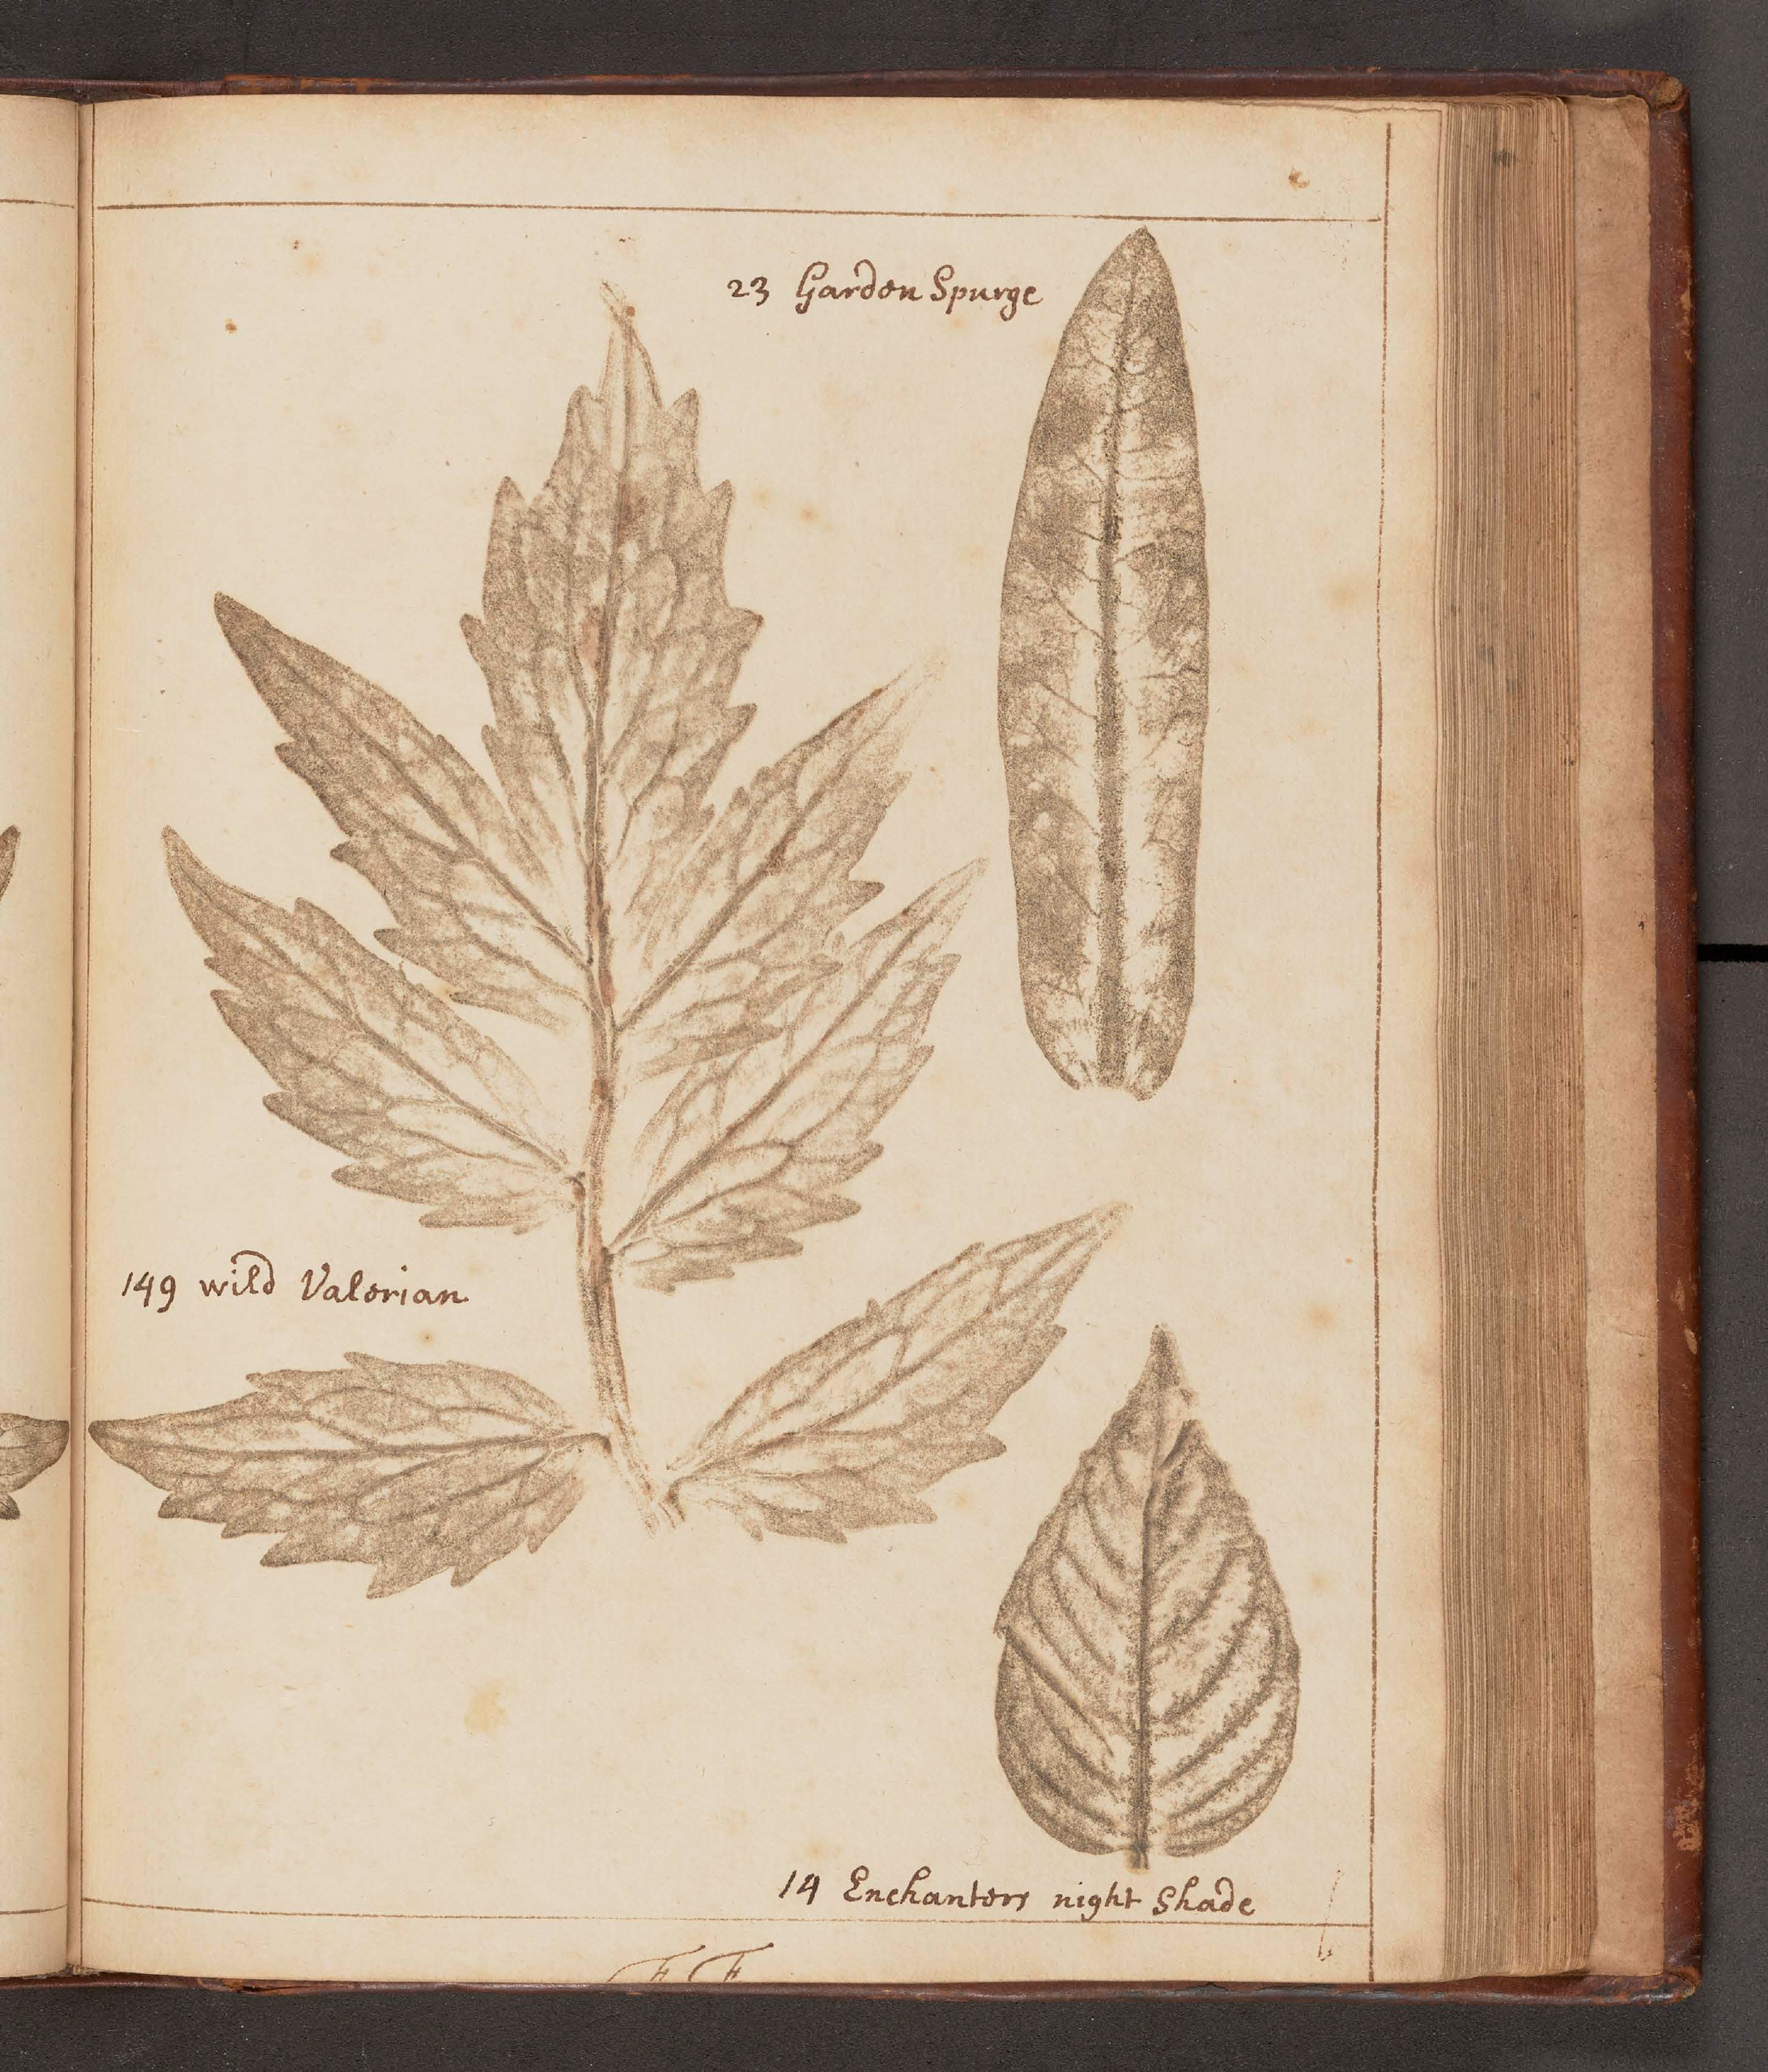 23 Garden Spurge
149 wild Valerian
14 Enchanters night Shade
FF